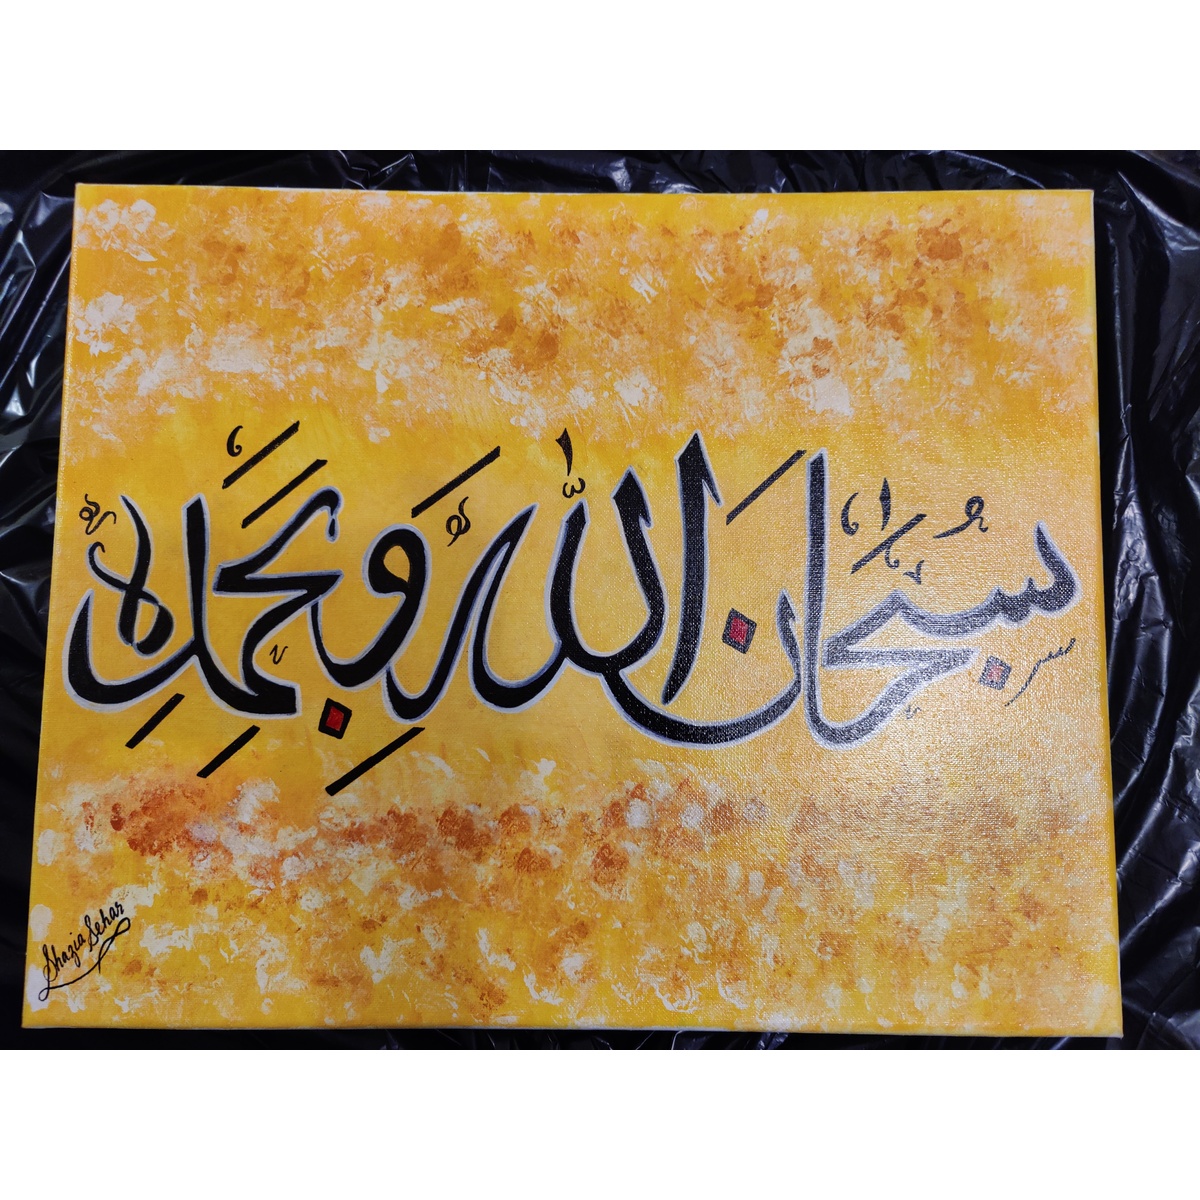 سُبْحَانَ اللّٰهِ وَبِحَمْدِهِ
Shazia Sehar